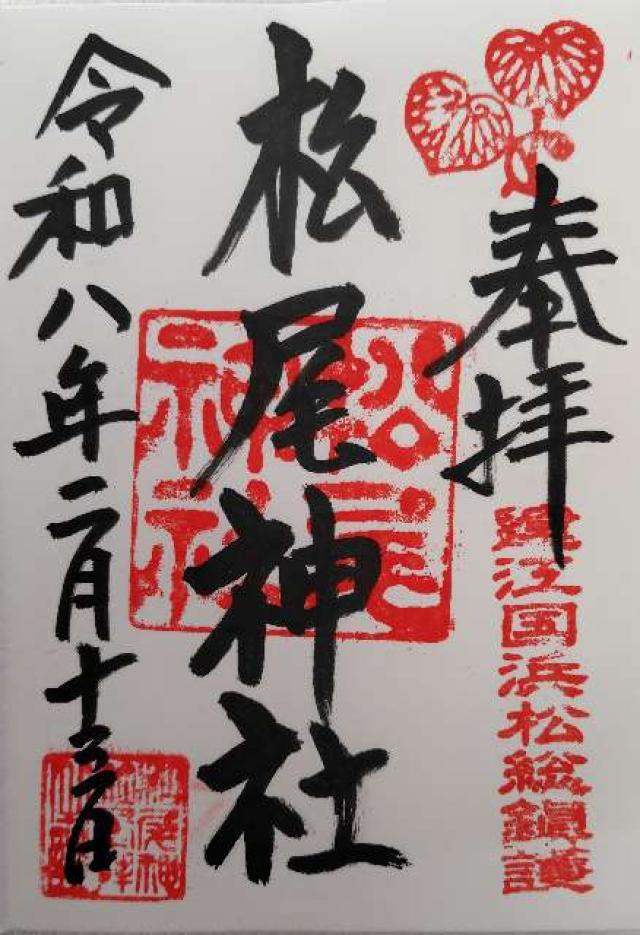 奉拝
遠江国浜松総鎮護
松尾神社
松尾神社
令和八年二月十二日